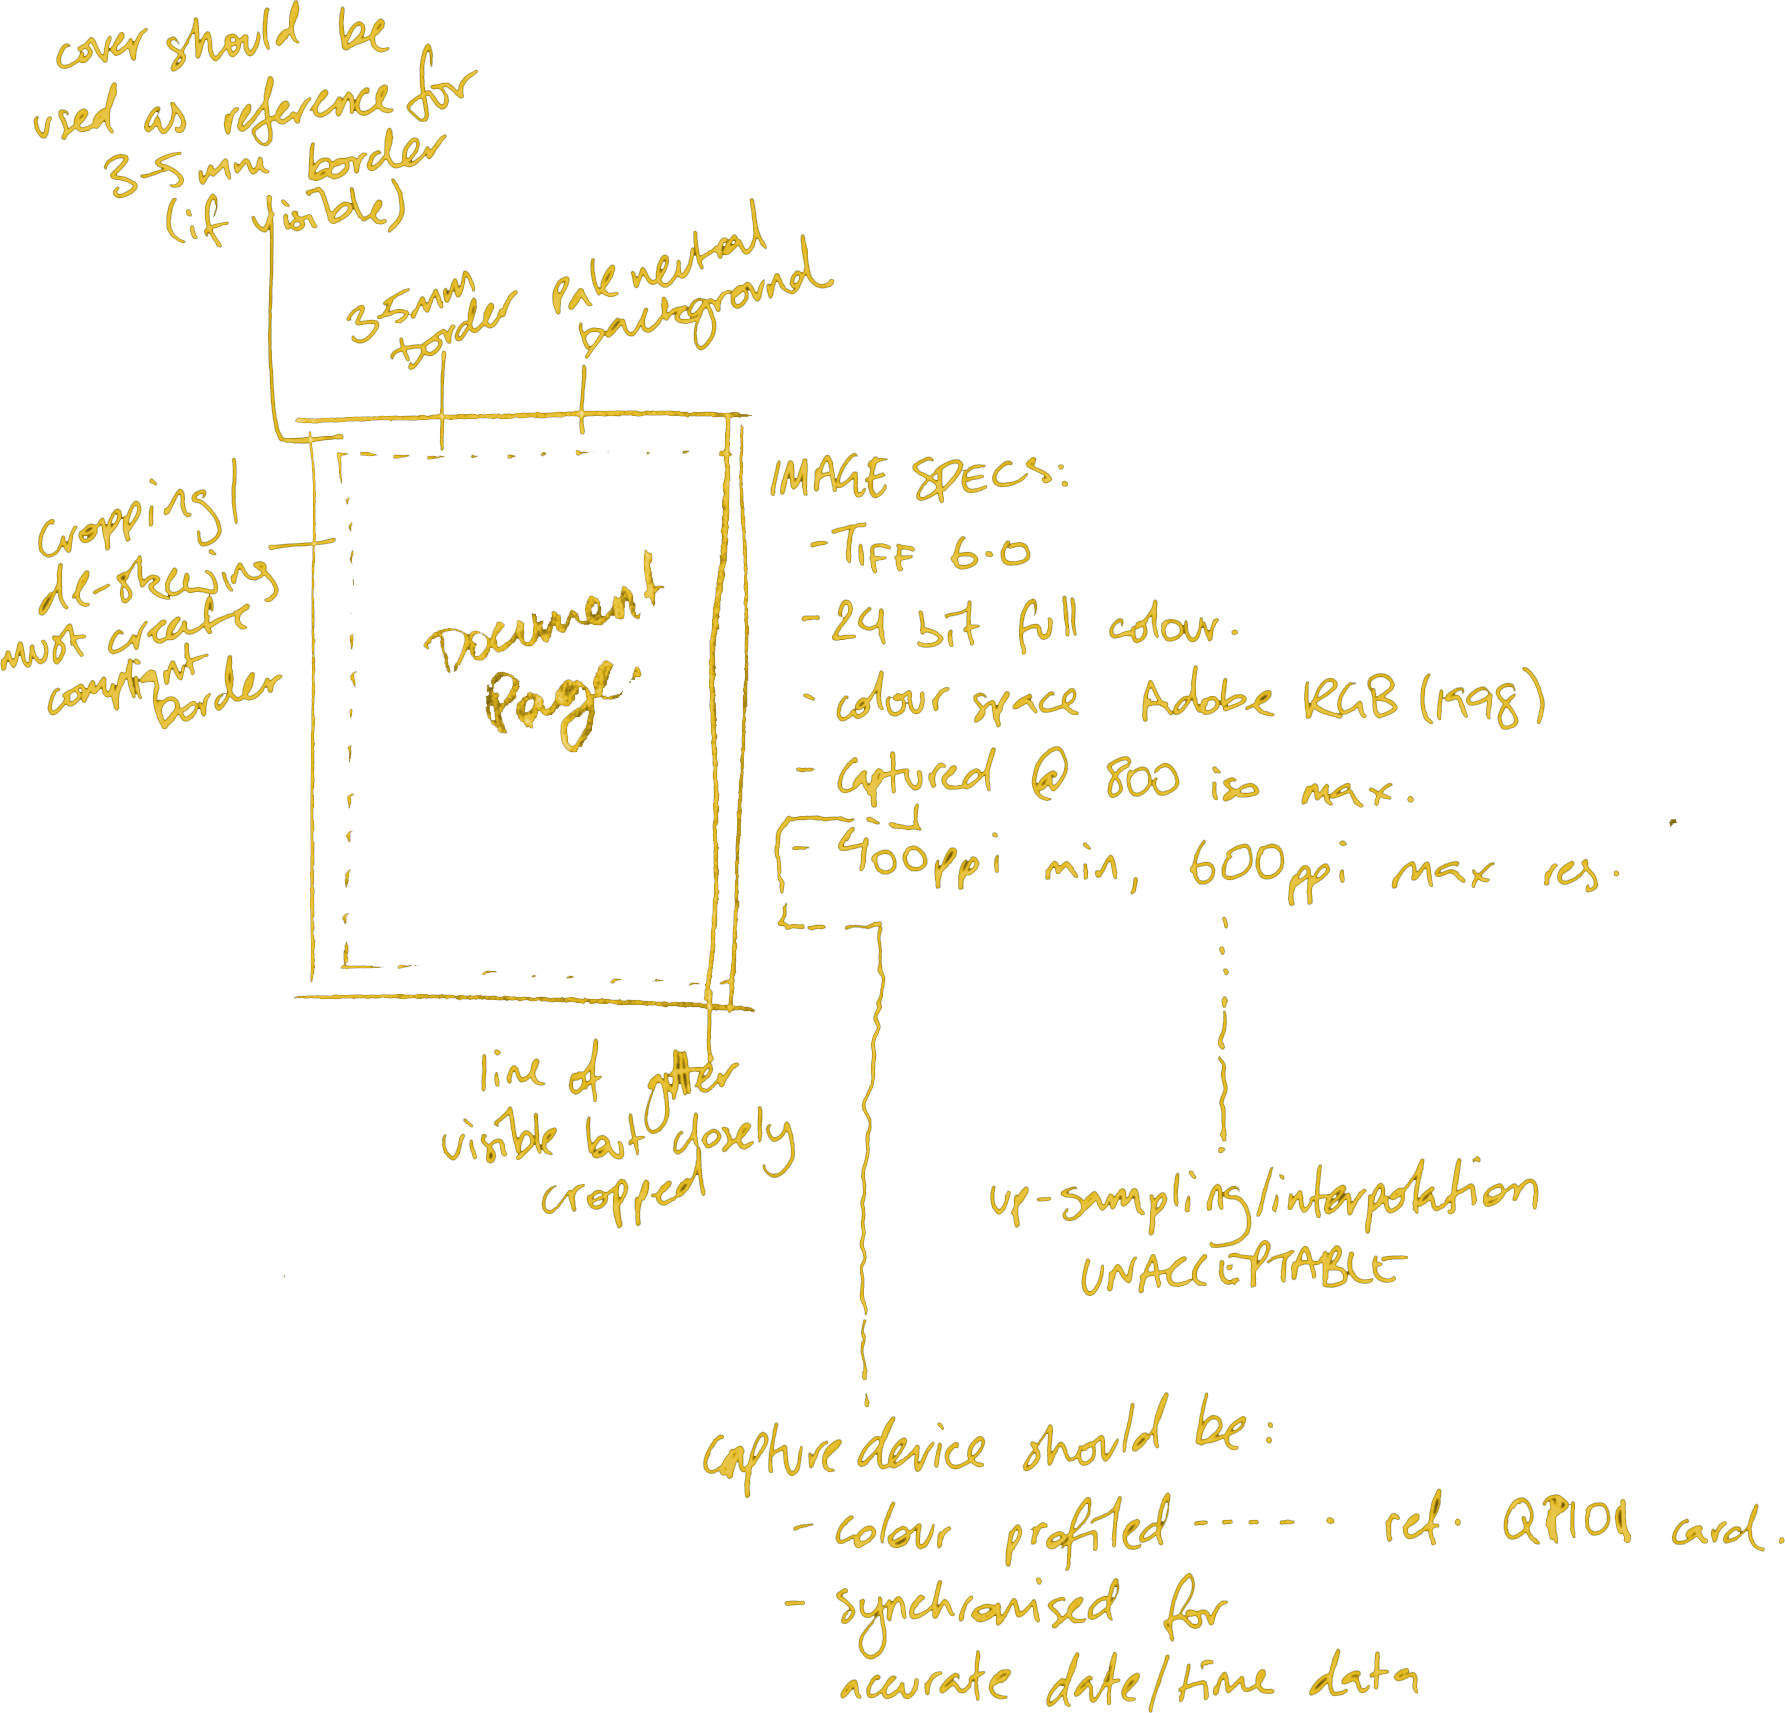 cover should be
used as reference for
3-5mm border
(if visible)
3-5mm
border
pale neutral
background
cropping/
de-skewing
must create
compliant
border
Document
Page
IMAGE SPECS:
- TIFF 6.0
- 24 bit full colour.
- colour space Adobe RGB (1998)
- captured @ 800 iso max.
- 400ppi min, 600ppi max res.
line of gutter
visible but closely
cropped
up-sampling/interpolation
UNACCEPTABLE
capture device should be:
- colour profiled ----- ref. QP101 card.
- synchronised for
accurate date/time data